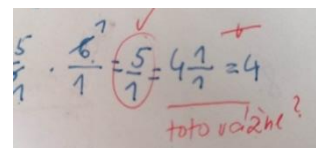 5/1 · 6/1 1 = 5/1 = 4 1/1 = 4
toto vážne?